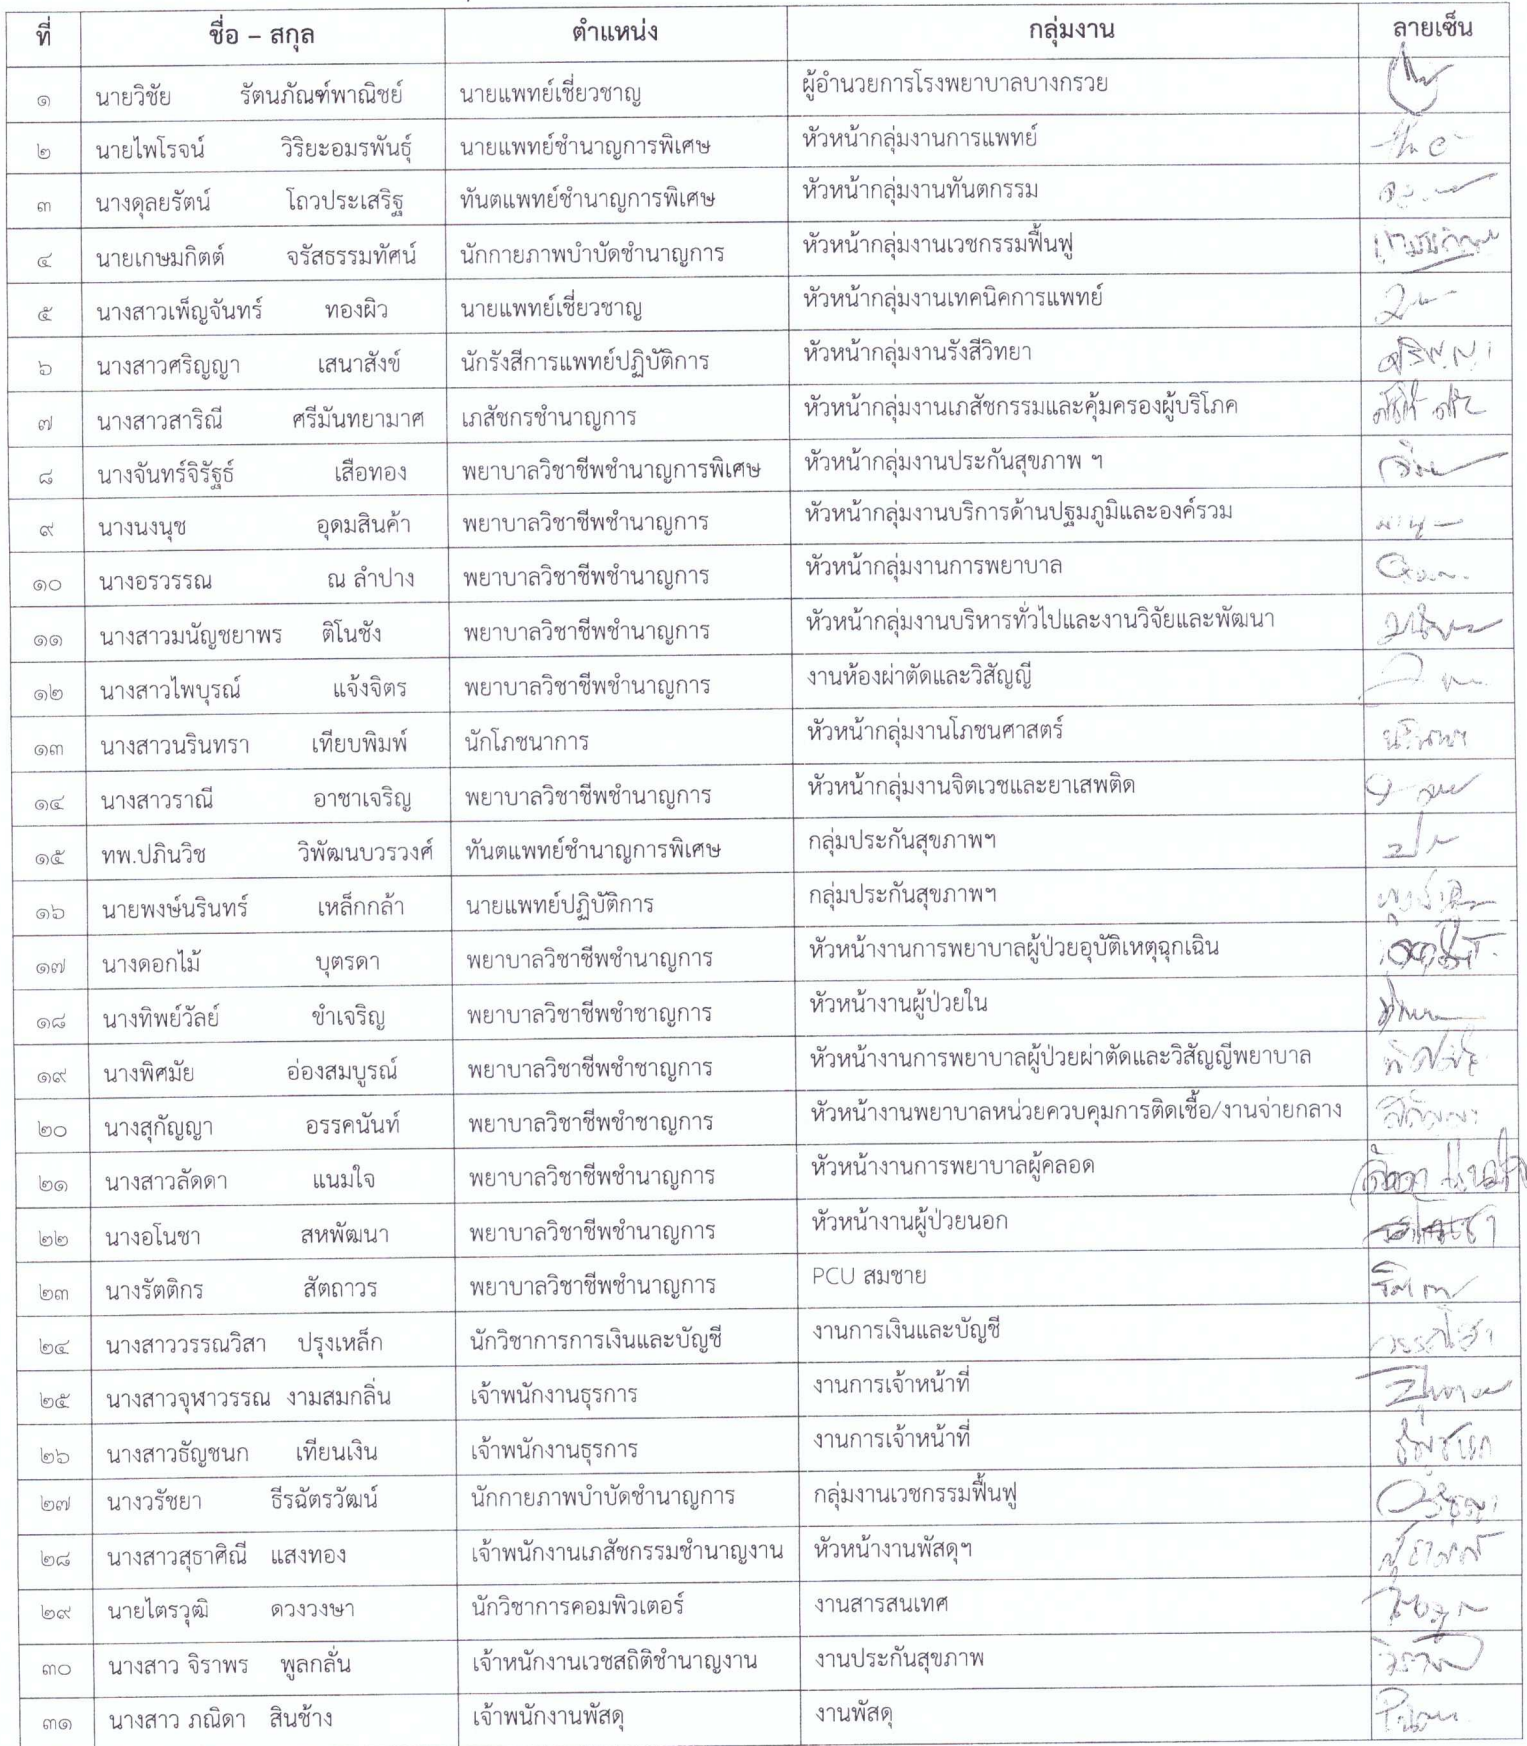 ที่ ชื่อ – สกุล ตำแหน่ง กลุ่มงาน ลายเซ็น
๑ นายวิชัย รัตนภัณฑ์พาณิชย์ นายแพทย์เชี่ยวชาญ ผู้อำนวยการโรงพยาบาลบางกรวย
๒ นายไพโรจน์ วิริยะอมรพันธุ์ นายแพทย์ชำนาญการพิเศษ หัวหน้ากลุ่มงานการแพทย์
๓ นางดุลยรัตน์ โถวประเสริฐ ทันตแพทย์ชำนาญการพิเศษ หัวหน้ากลุ่มงานทันตกรรม
๔ นายเกษมกิตต์ จรัสธรรมทัศน์ นักกายภาพบำบัดชำนาญการ หัวหน้ากลุ่มงานเวชกรรมฟื้นฟู
๕ นางสาวเพ็ญจันทร์ ทองผิว นายแพทย์เชี่ยวชาญ หัวหน้ากลุ่มงานเทคนิคการแพทย์
๖ นางสาวศริญญา เสนาสังข์ นักรังสีการแพทย์ปฏิบัติการ หัวหน้ากลุ่มงานรังสีวิทยา
๗ นางสาวสาริณี ศรีมันทยามาศ เภสัชกรชำนาญการ หัวหน้ากลุ่มงานเภสัชกรรมและคุ้มครองผู้บริโภค
๘ นางจันทร์จิรัฐธ์ เสือทอง พยาบาลวิชาชีพชำนาญการพิเศษ หัวหน้ากลุ่มงานประกันสุขภาพ ฯ
๙ นางนงนุช อุดมสินค้า พยาบาลวิชาชีพชำนาญการ หัวหน้ากลุ่มงานบริการด้านปฐมภูมิและองค์รวม
๑๐ นางอรวรรณ ณ ลำปาง พยาบาลวิชาชีพชำนาญการ หัวหน้ากลุ่มงานการพยาบาล
๑๑ นางสาวมนัญชยาพร ติโนชัง พยาบาลวิชาชีพชำนาญการ หัวหน้ากลุ่มงานบริหารทั่วไปและงานวิจัยและพัฒนา
๑๒ นางสาวไพบุรณ์ แจ้งจิตร พยาบาลวิชาชีพชำนาญการ งานห้องผ่าตัดและวิสัญญี
๑๓ นางสาวนรินทรา เทียบพิมพ์ นักโภชนาการ หัวหน้ากลุ่มงานโภชนศาสตร์
๑๔ นางสาวราณี อาชาเจริญ พยาบาลวิชาชีพชำนาญการ หัวหน้ากลุ่มงานจิตเวชและยาเสพติด
๑๕ ทพ.ปภินวิช วิพัฒนบวรวงศ์ ทันตแพทย์ชำนาญการพิเศษ กลุ่มประกันสุขภาพฯ
๑๖ นายพงษ์นรินทร์ เหล็กกล้า นายแพทย์ปฏิบัติการ กลุ่มประกันสุขภาพฯ
๑๗ นางดอกไม้ บุตรดา พยาบาลวิชาชีพชำนาญการ หัวหน้างานการพยาบาลผู้ป่วยอุบัติเหตุฉุกเฉิน
๑๘ นางทิพย์วัลย์ ขำเจริญ พยาบาลวิชาชีพชำชาญการ หัวหน้างานผู้ป่วยใน
๑๙ นางพิศมัย อ่องสมบูรณ์ พยาบาลวิชาชีพชำชาญการ หัวหน้างานการพยาบาลผู้ป่วยผ่าตัดและวิสัญญีพยาบาล
๒๐ นางสุกัญญา อรรคนันท์ พยาบาลวิชาชีพชำชาญการ หัวหน้างานพยาบาลหน่วยควบคุมการติดเชื้อ/งานจ่ายกลาง
๒๑ นางสาวลัดดา แนมใจ พยาบาลวิชาชีพชำนาญการ หัวหน้างานการพยาบาลผู้คลอด
๒๒ นางอโนชา สหพัฒนา พยาบาลวิชาชีพชำนาญการ หัวหน้างานผู้ป่วยนอก
๒๓ นางรัตติกร สัตถาวร พยาบาลวิชาชีพชำนาญการ PCU สมชาย
๒๔ นางสาววรรณวิสา ปรุงเหล็ก นักวิชาการการเงินและบัญชี งานการเงินและบัญชี
๒๕ นางสาวจุฬาวรรณ งามสมกลิ่น เจ้าพนักงานธุรการ งานการเจ้าหน้าที่
๒๖ นางสาวธัญชนก เทียนเงิน เจ้าพนักงานธุรการ งานการเจ้าหน้าที่
๒๗ นางวรัชยา ธีรฉัตรวัฒน์ นักกายภาพบำบัดชำนาญการ กลุ่มงานเวชกรรมฟื้นฟู
๒๘ นางสาวสุธาศิณี แสงทอง เจ้าพนักงานเภสัชกรรมชำนาญงาน หัวหน้างานพัสดุฯ
๒๙ นายไตรวุฒิ ดวงวงษา นักวิชาการคอมพิวเตอร์ งานสารสนเทศ
๓๐ นางสาว จิราพร พูลกลั่น เจ้าหนักงานเวชสถิติชำนาญงาน งานประกันสุขภาพ
๓๑ นางสาว ภณิดา สินช้าง เจ้าพนักงานพัสดุ งานพัสดุ